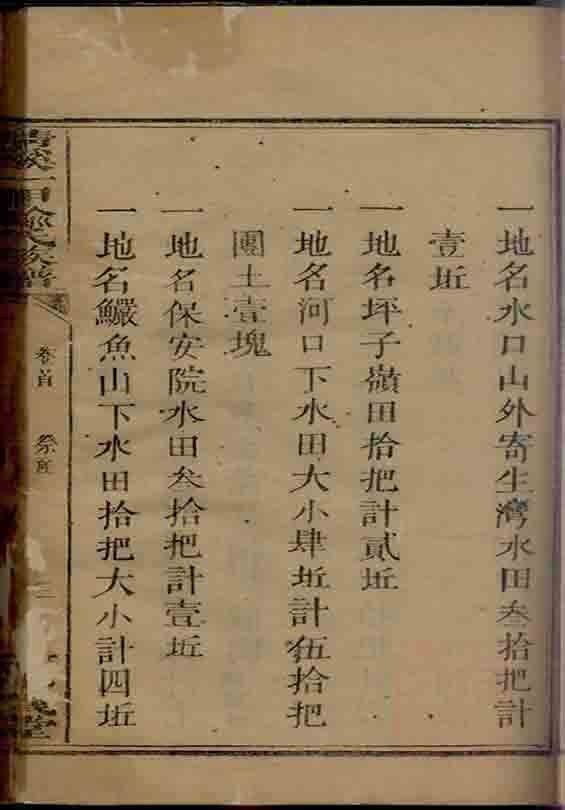 一地名水口山外寄生灣水田叁拾把計
壹坵
一地名坪子嶺田拾把計貳坵
一地名河口下水田大小肆坵計伍拾把
團土壹塊
一地名保安院水田叁拾把計壹坵
一地名鱖魚山下水田拾把大小計四坵
氏族譜
卷首 祭產
堂